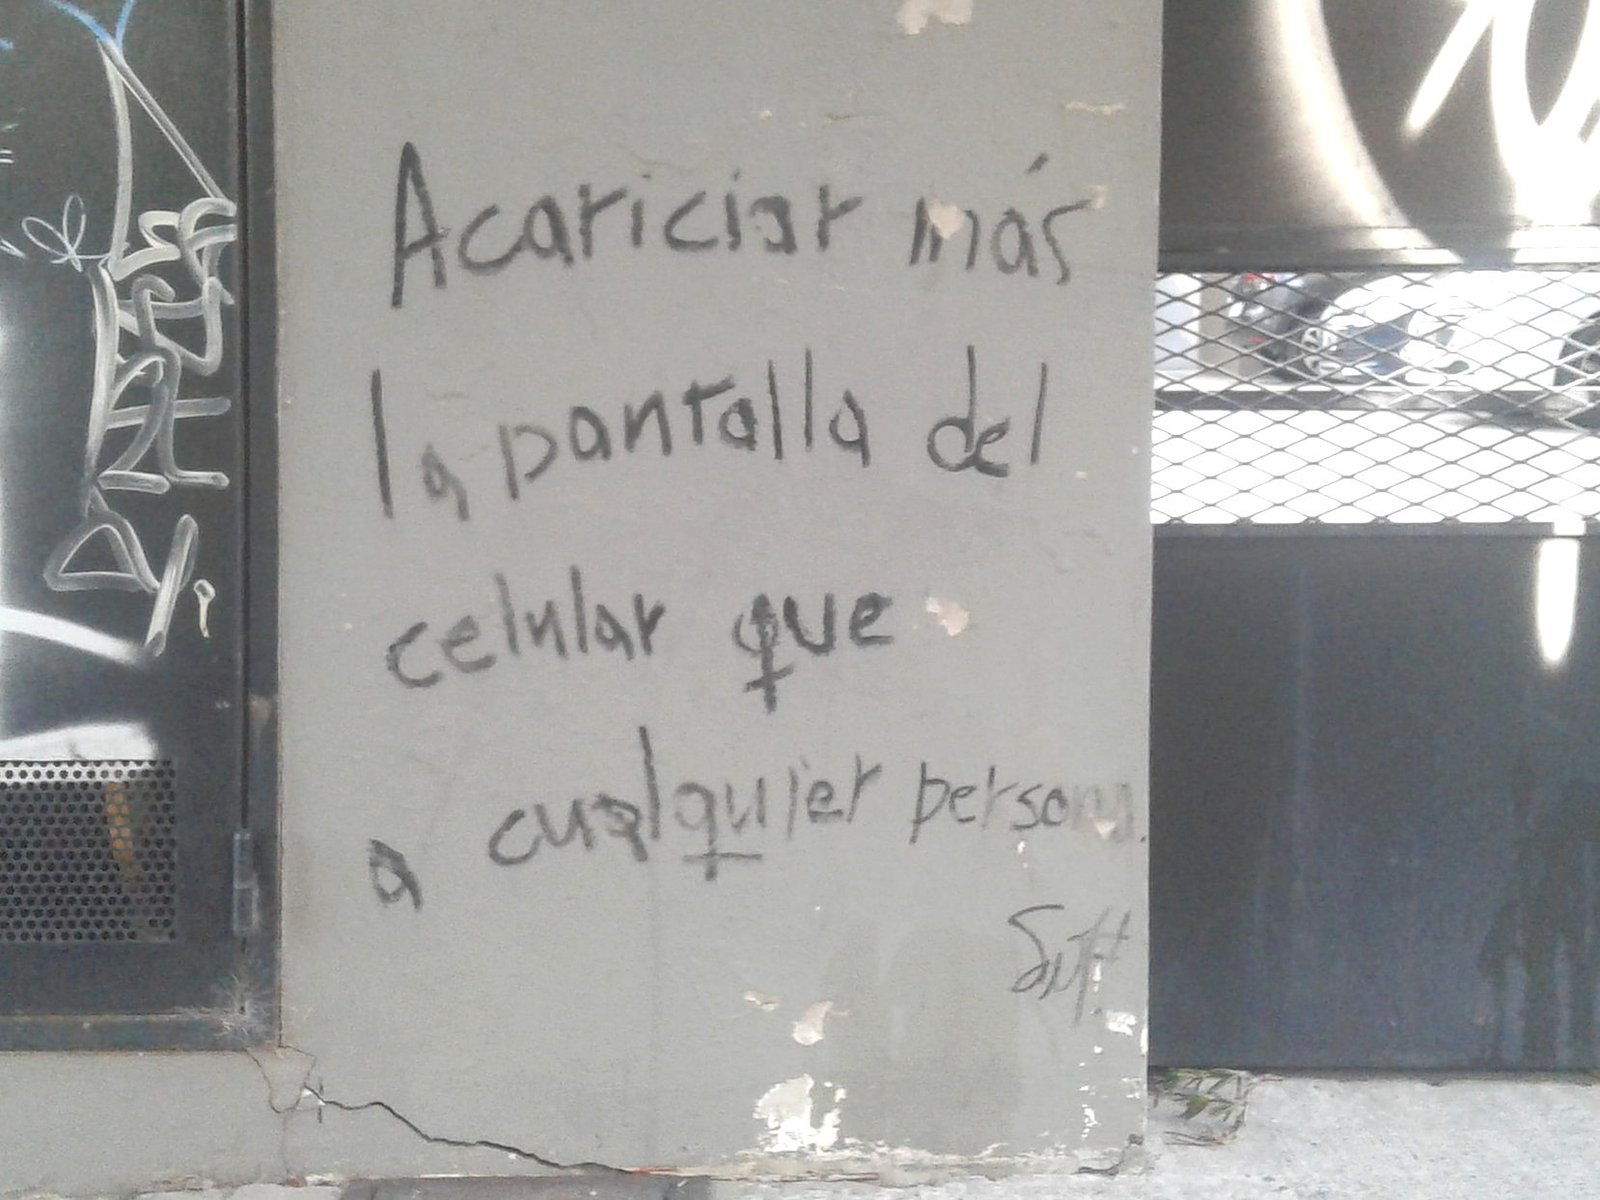 Acariciar más
la pantalla del
celular que
a cualquier persona.